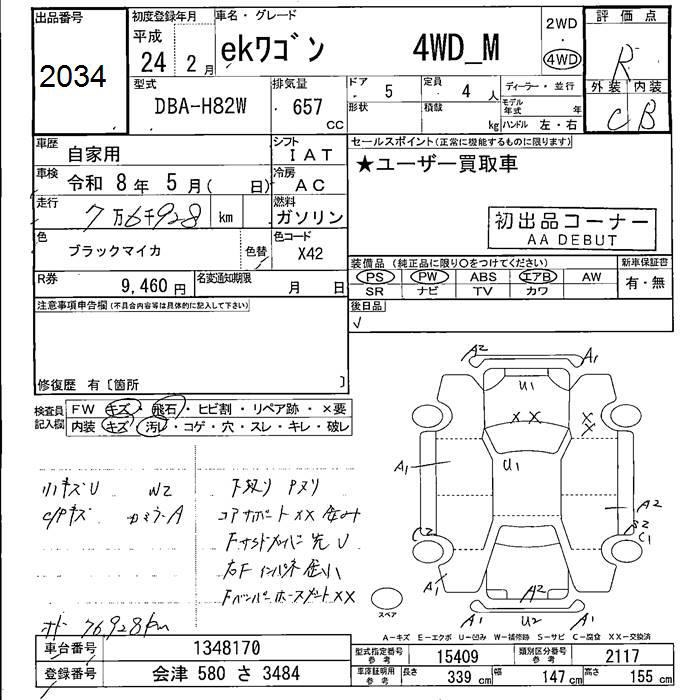 出品番号
2034
初度登録年月
平成
24 2月
車名・グレード
ekワゴン 4WD_M
2WD
・
4WD
評価点
R
外装 内装
C B
型式
DBA-H82W
排気量
657
CC
ドア 5
定員 4人
形状
積載 kg
ディーラー・並行
モデル年式 年
ハンドル 左・右
車歴 自家用
シフト IAT
車検 令和 8年 5月( 日)
冷房 AC
走行 7万6千928 km
燃料 ガソリン
色 ブラックマイカ
色替
色コード X42
R券 9,460円
名変通知期限 月 日
セールスポイント(正常に機能するものに限ります)
★ユーザー買取車
初出品コーナー
AA DEBUT
装備品(純正品に限り○をつけてください)
PS PW ABS エアB AW
SR ナビ TV カワ
新車保証書
有・無
後日品
注意事項申告欄(不具合内容等は具体的に記入して下さい)
修復歴 有〔箇所 〕
検査員記入欄
FW キズ・飛石・ヒビ割・リペア跡・×要
内装 キズ・汚れ・コゲ・穴・スレ・キレ・破レ
リハキズU W2
下廻り Pヌリ
コアサポートXX 歪み
右Fインパネ 歪小
オド 76928km
A2 A1
U1
X X
X X
U1
A1
A2
C2
B2
C1
A1
A2
A1 U2 A1
スペア
A-キズ E-エクボ U-凹み W-補修跡 S-サビ C-腐食 XX-交換済
車台番号 1348170
登録番号 会津 580 さ 3484
型式指定番号 参考 15409
類別区分番号 参考 2117
車庫証明用 参考 長さ 339cm 幅 147cm 高さ 155cm